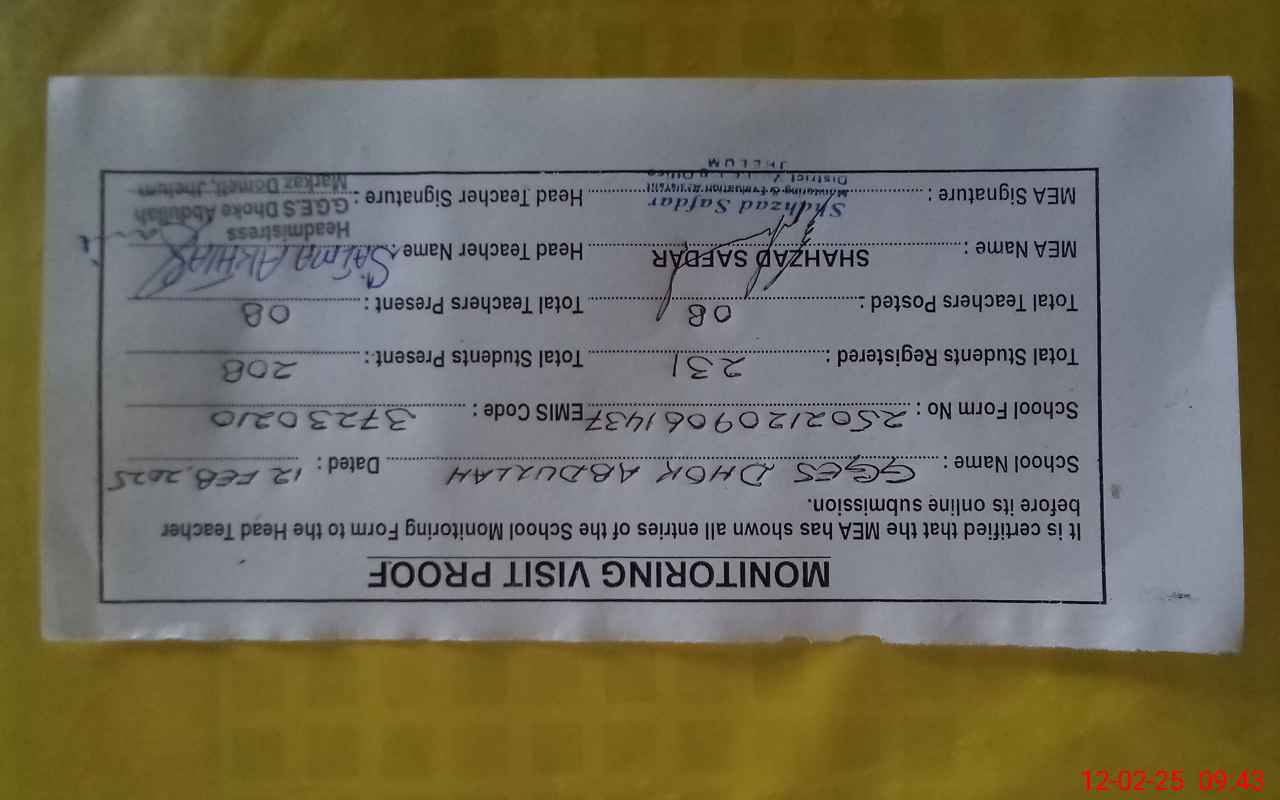 MONITORING VISIT PROOF
It is certified that the MEA has shown all entries of the School Monitoring Form to the Head Teacher
before its online submission.
School Name : GGES DHOK ABDULLAH Dated : 12 FEB, 2025
School Form No : 250212090061437 EMIS Code : 37230210
Total Students Registered : 231 Total Students Present : 208
Total Teachers Posted : 08 Total Teachers Present : 08
MEA Name : SHAHZAD SAFDAR Head Teacher Name : SAIMA AKHTAR
MEA Signature : Head Teacher Signature :
Shahzad Safdar
Monitoring & Evaluation Assistant
District
JHELUM
Headmistress
G.G.E.S Dhoke Abdullah
Markaz Domeli, Jhelum
12-02-25 09:43